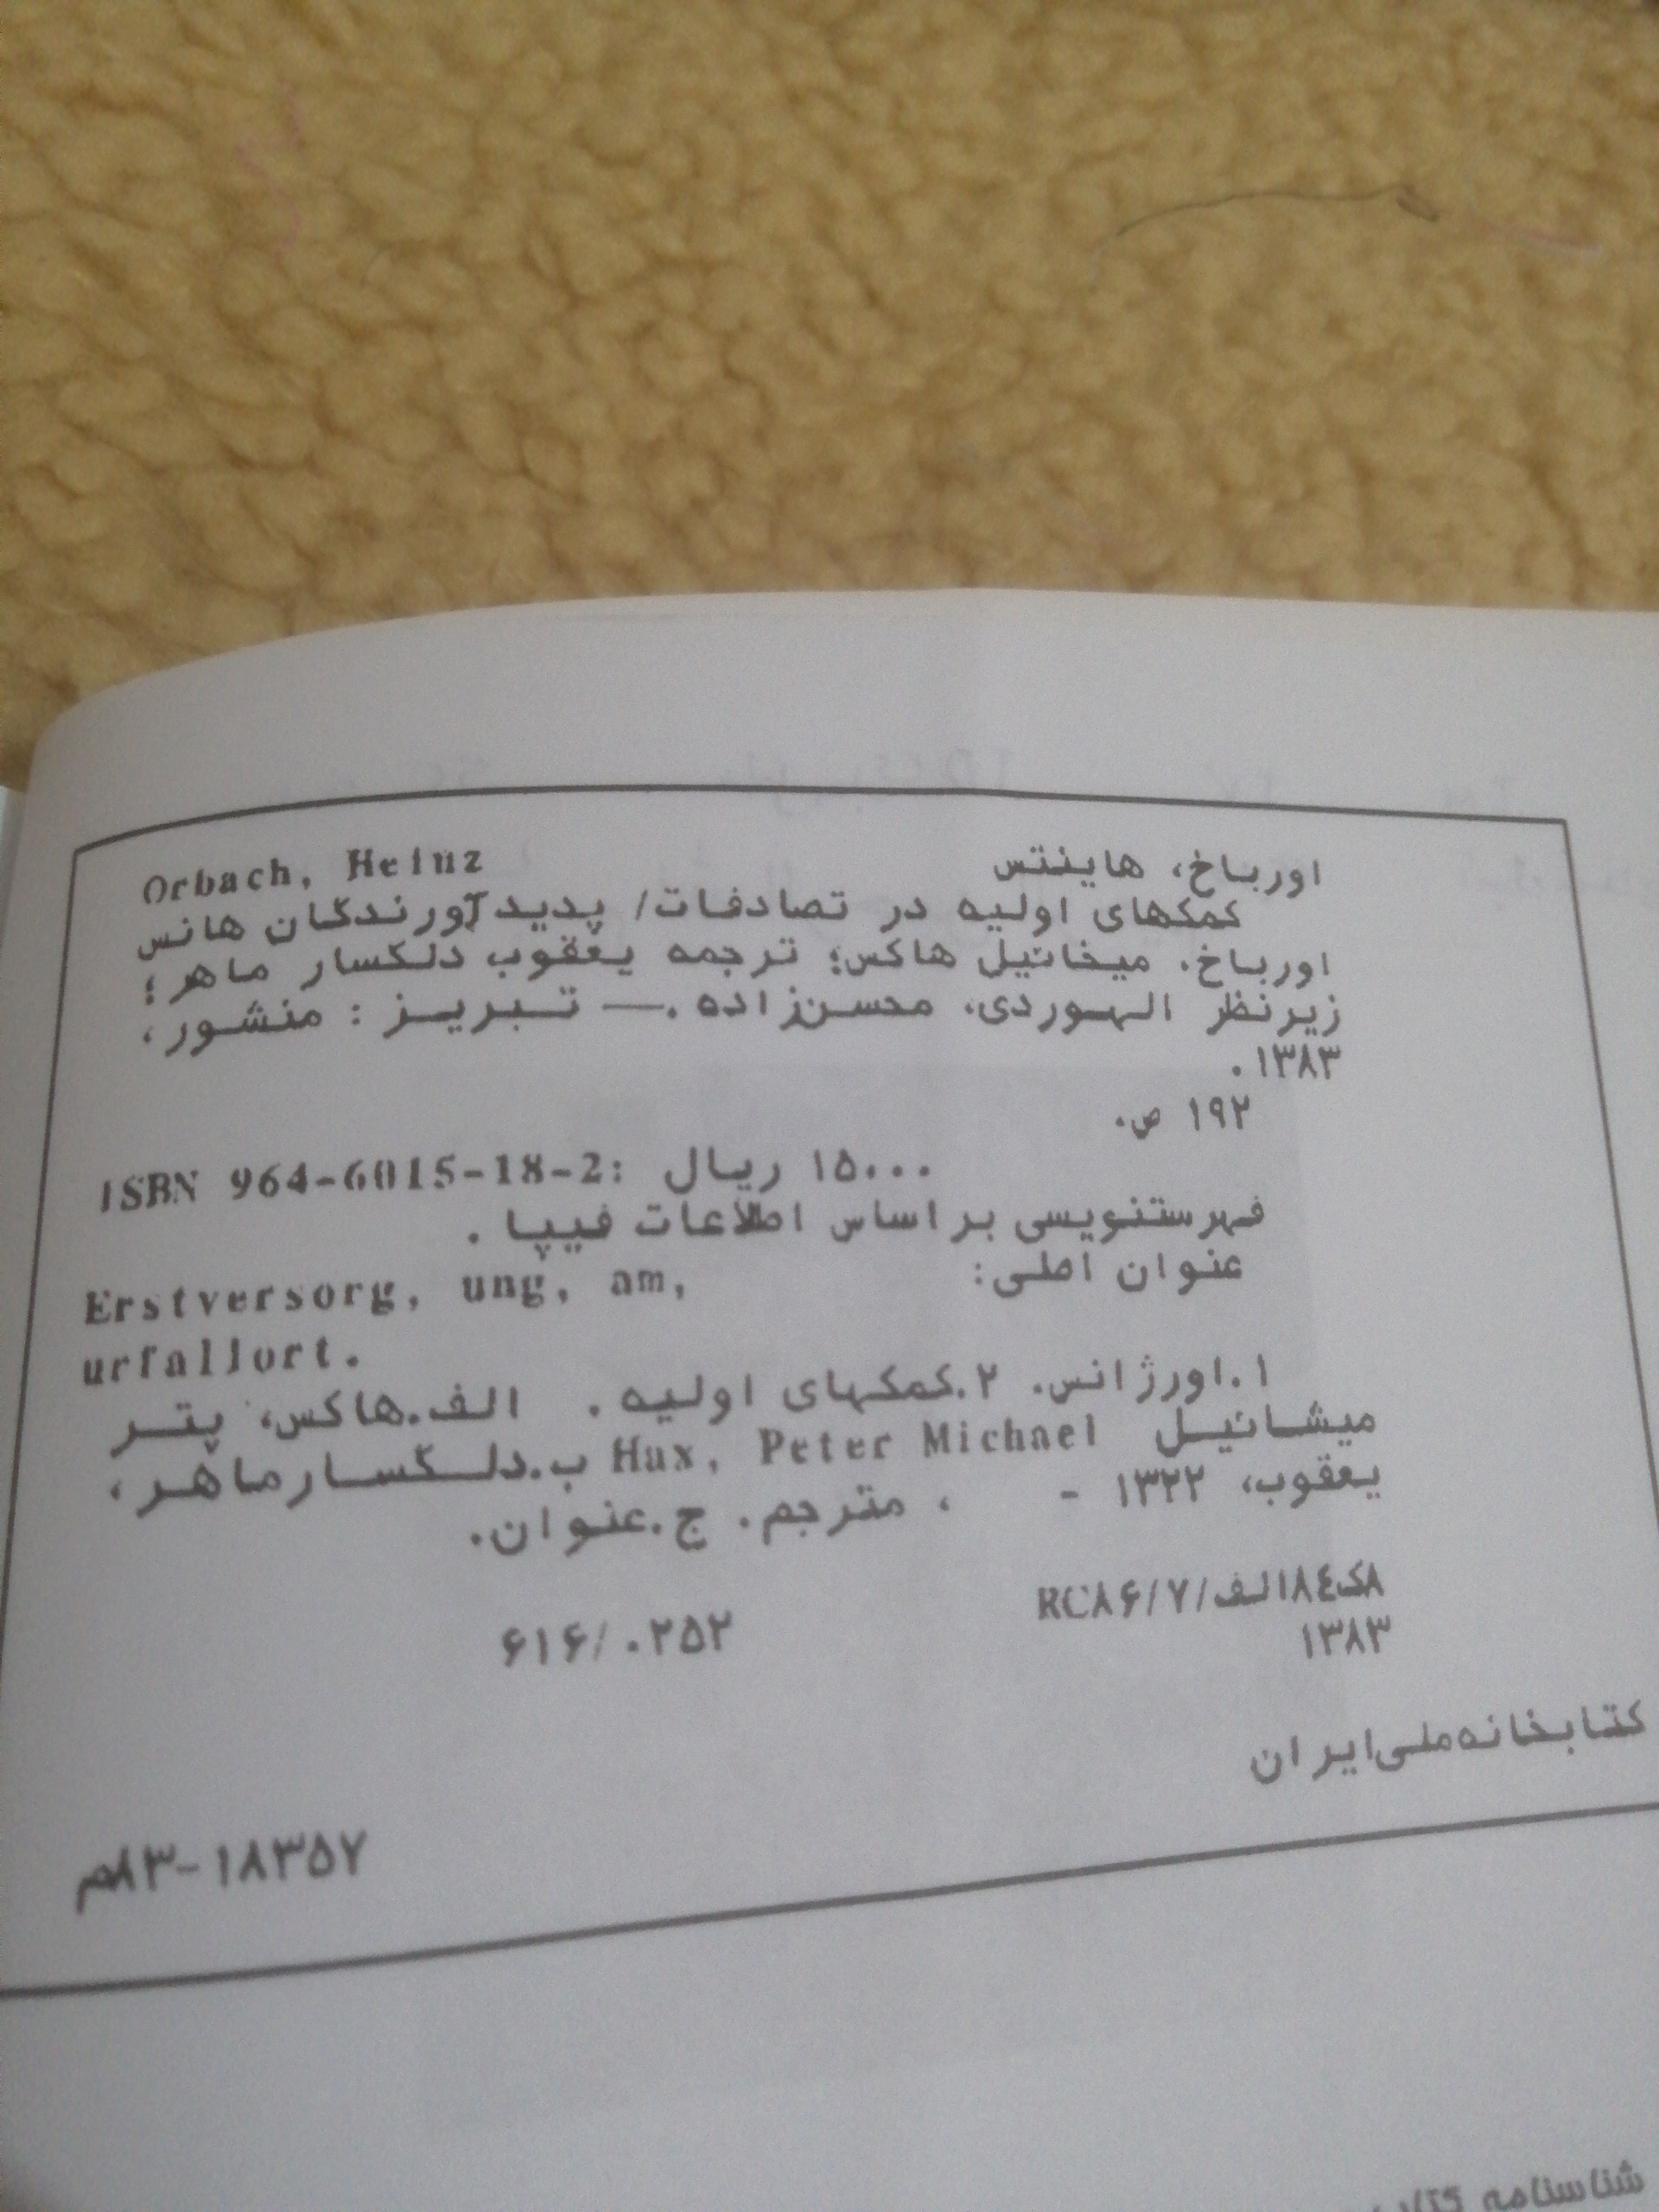 اورباخ، هاینتس Orbach, Heinz
کمکهای اولیه در تصادفات/ پدیدآورندگان هانس
اورباخ، میخائیل هاکس؛ ترجمه یعقوب دلکسار ماهر؛
زیرنظر الهوردی، محسن‌زاده .— تبریز : منشور،
۱۳۸۳.
۱۹۲ ص.
ISBN 964-6015-18-2: ۱۵۰۰۰ ریال
فهرستنویسی براساس اطلاعات فیپا .
عنوان اصلی: Erstversorg, ung, am,
urfallort.
۱.اورژانس. ۲.کمکهای اولیه . الف.هاکس، پتر
میشائیل Hax, Peter Michael ب.دلکسارماهر،
یعقوب، ۱۳۲۲ - ، مترجم. ج.عنوان.
۸ک۱۸۴الف/۷/RC۸۶
۶۱۶/۰۲۵۲
۱۳۸۳
کتابخانه‌ملی‌ایران
م۸۳-۱۸۳۵۷
شناسنامه